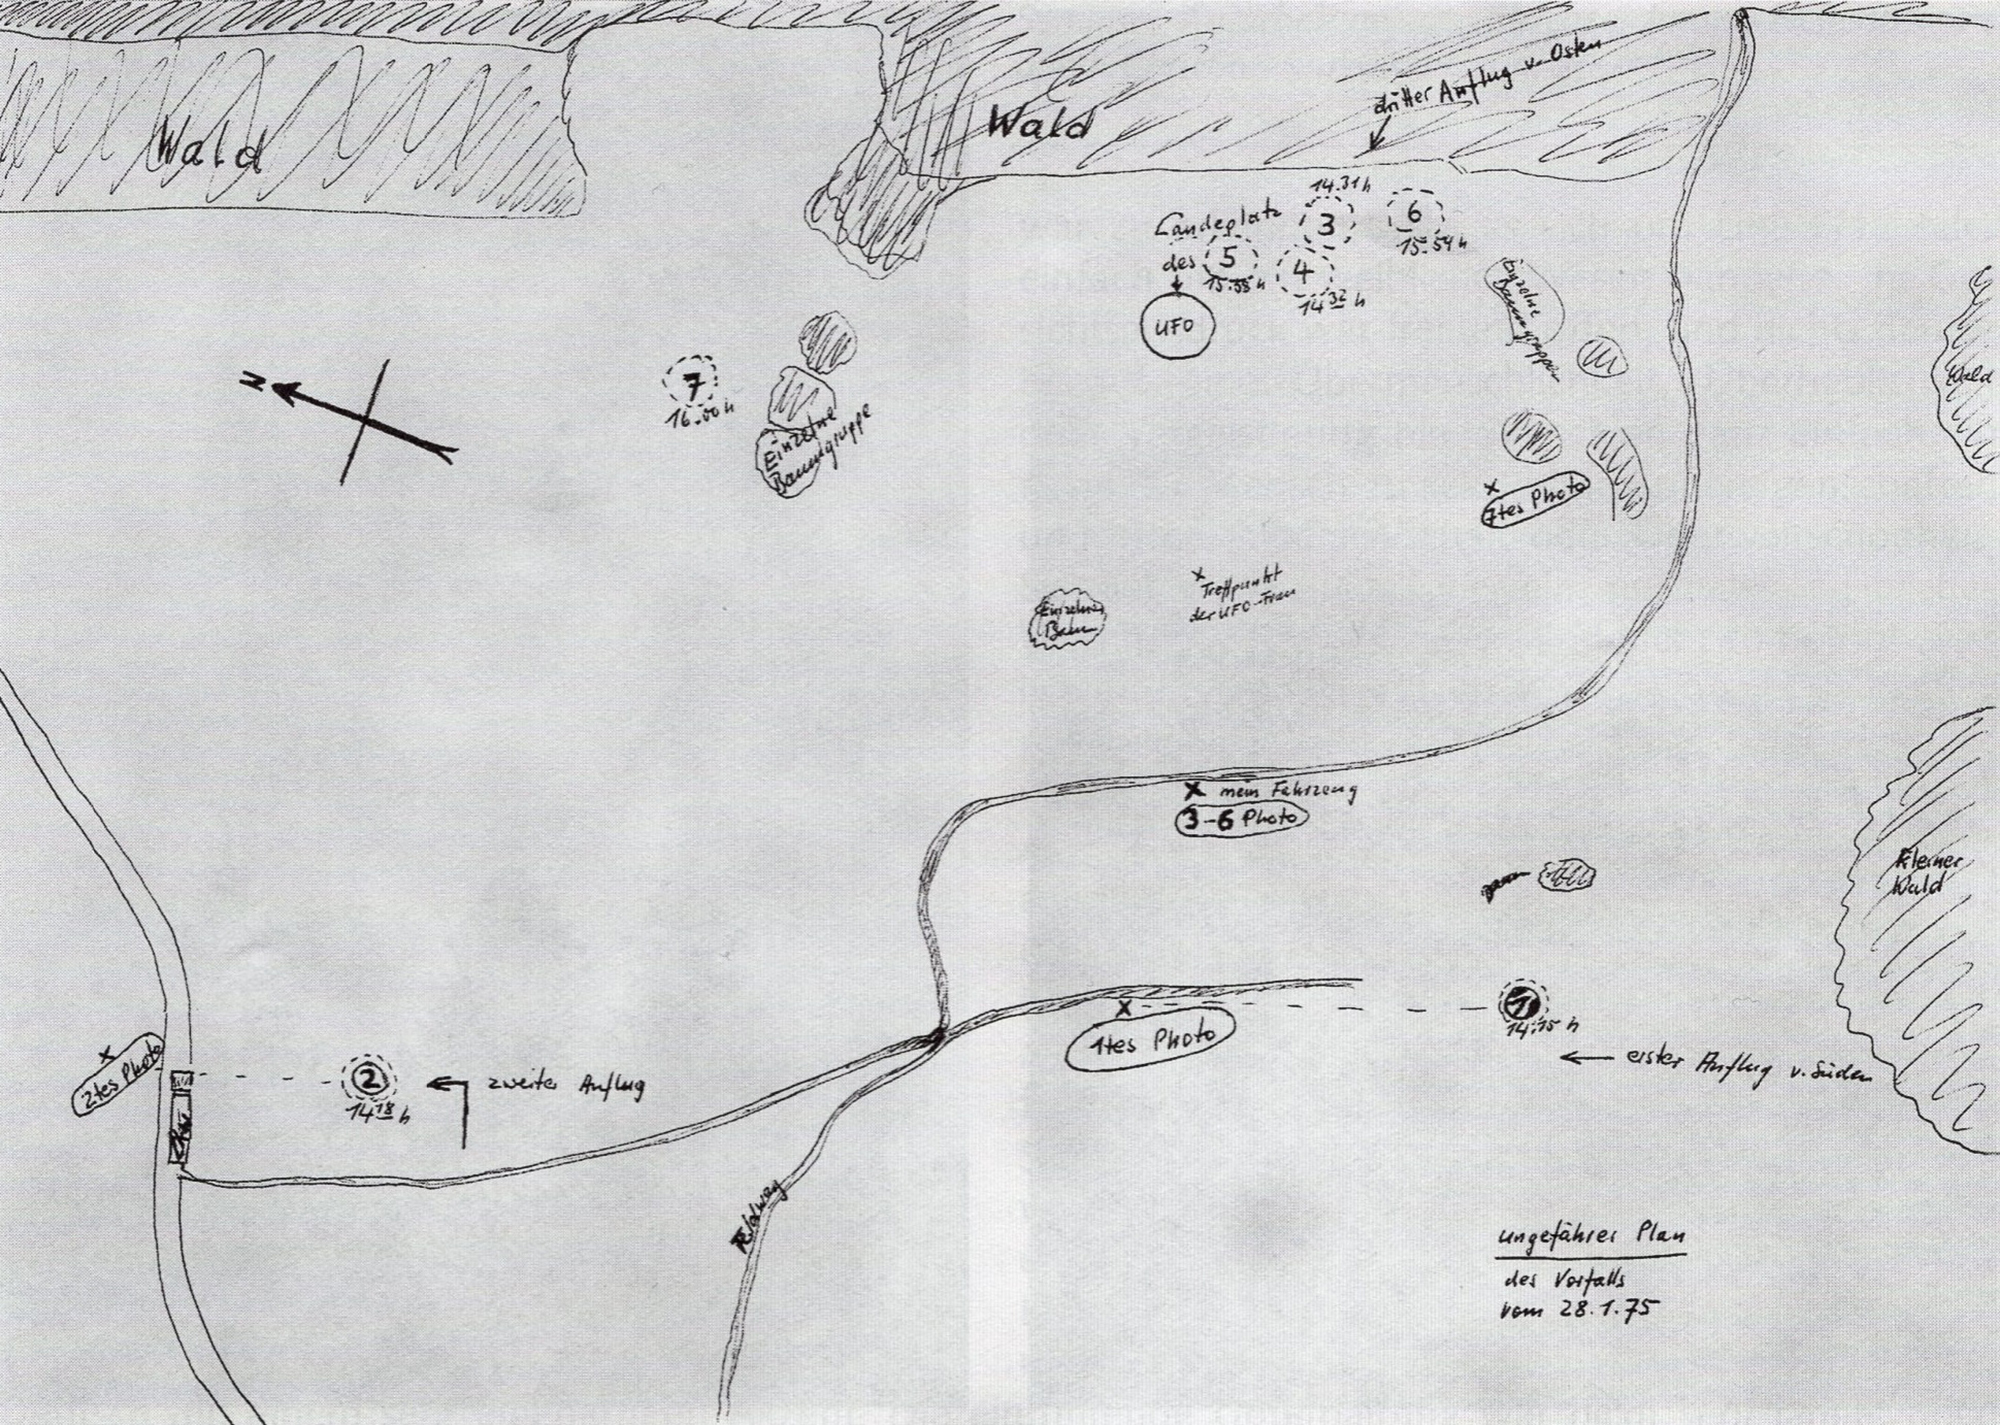 dritter Anflug v. Osten
Wald
Wald
14.31 h
Landeplatz
3
6
des
5
15.54 h
4
15.38 h
14 32 h
UFO
Einzelne
Baumgruppen
N
7
16.00 h
Wald
Einzelne
Baumgruppe
7tes Photo
x
x
Treffpunkt
der UFO-Frau
Einzelner
Baum
x mein Fahrzeug
3-6 Photo
Kleiner
Wald
x
1tes Photo
1
14.15 h
← erster Anflug v. Süden
x
2tes Photo
2
14 18 h
zweiter Anflug
Feldweg
ungefährer Plan
des Vorfalls
vom 28.1.75